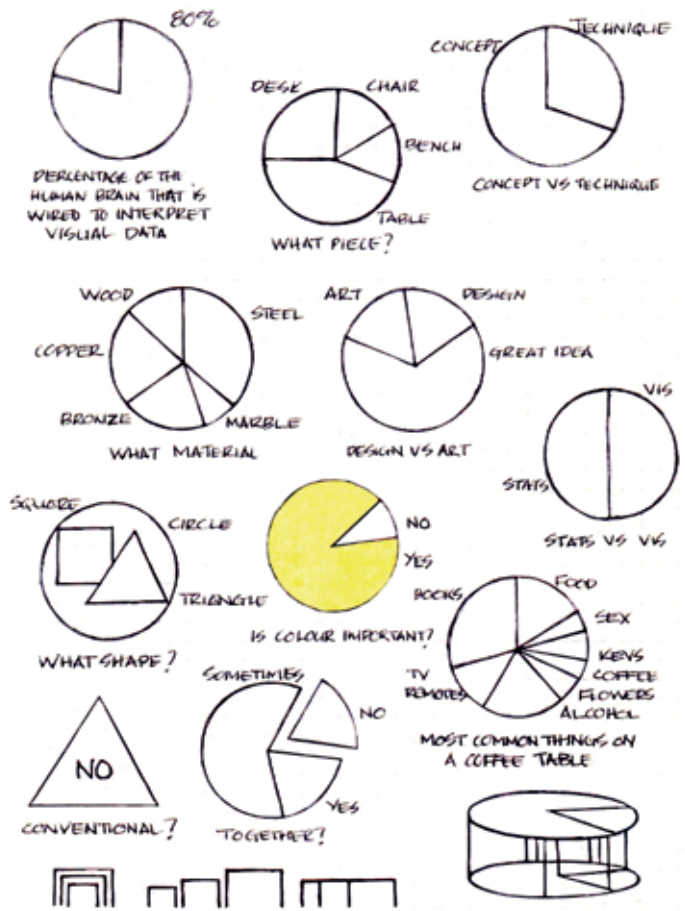 80%
PERCENTAGE OF THE
HUMAN BRAIN THAT IS
WIRED TO INTERPRET
VISUAL DATA
DESK
CHAIR
BENCH
TABLE
WHAT PIECE?
CONCEPT
TECHNIQUE
CONCEPT VS TECHNIQUE
WOOD
STEEL
COPPER
BRONZE
MARBLE
WHAT MATERIAL
ART
DESIGN
GREAT IDEA
DESIGN VS ART
VIS
STATS
STATS VS VIS
SQUARE
CIRCLE
TRIANGLE
WHAT SHAPE?
NO
YES
IS COLOUR IMPORTANT?
BOOKS
FOOD
SEX
KEYS
COFFEE
FLOWERS
ALCOHOL
TV
REMOTES
MOST COMMON THINGS ON
A COFFEE TABLE
NO
CONVENTIONAL?
SOMETIMES
NO
YES
TOGETHER?